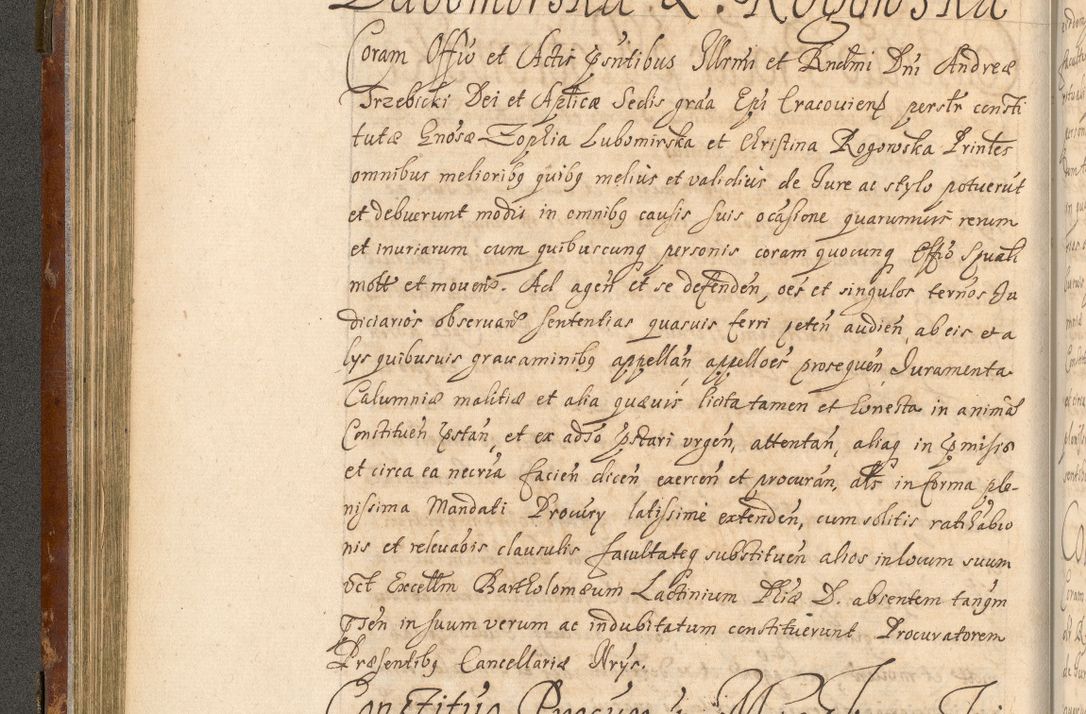 Lubomirska & Rogowska
Coram Offio et Actis pñtibus Illrmi et Rndmi Dni Andreæ
Trzebicki Dei et Aplicæ Sedis grãa Epi Cracovien perstr consti
tutæ Gnosæ Zophia Lubomirska et Christina Rogowska Printes
omnibus melioribq quibq melius et validius de Iure ac stylo potuerut
et debuerunt modis in omnibq causis suis ocasione quarumvis rerum
et iniuriarum cum quibuscunq personis coram quocunq Offio Spuali
mott et mouen. Ad agen et se defenden, oes et singulos ternos Iu
diciarios observan sententias quasuis ferri peten audien, ab eis et a
lys quibusuis gravaminibq appellan appelloes prosequen Iuramenta
Calumniæ malitiæ et alia quævis licita tamen et honesta in animã
Constituen pstan, et ex adso pstari urgen, attentan, aliaq in pmisis
et circa ea necria facien dicen exercen et procuran, als in forma ple-
nissima Mandati Procury latissime extenden, cum solitis ratihabio
nis et relevaois clausulis facultateq substituen alios in locum suum
vct Excellm Bartholomæum Lactinium Phiæ D. absentem tanqm
psen in suum verum ac indubitatum constituerunt Procuratorem
Præsentibq Cancellariæ Nrys.